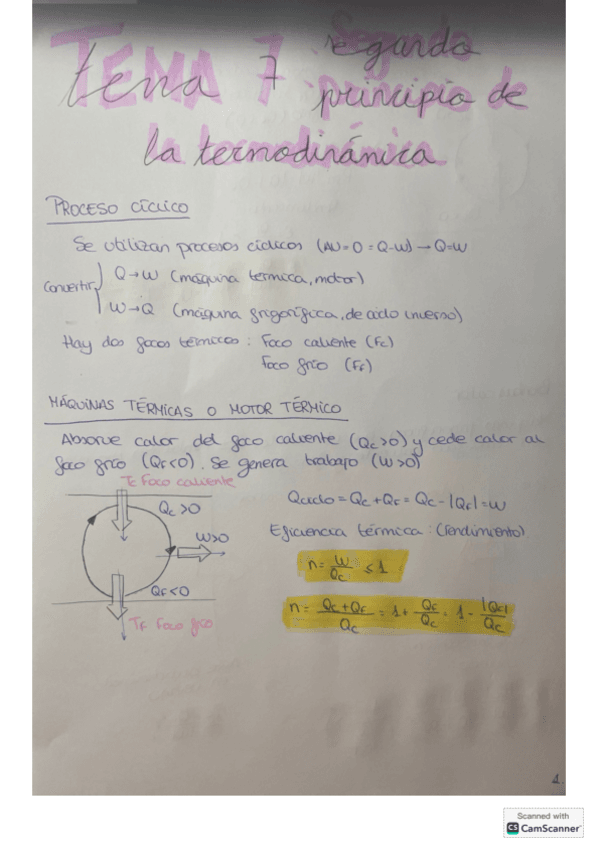 Tema 7 Segundo
principio de
la termodinámica
PROCESO CÍCLICO
Se utilizan procesos cíclicos (ΔU=0=Q-W)→Q=W
Convertir
Q→W (máquina térmica, motor)
W→Q (máquina frigorífica, de ciclo inverso)
Hay dos focos térmicos: Foco caliente (Fc)
Foco frío (Ff)
MÁQUINAS TÉRMICAS O MOTOR TÉRMICO
Absorve calor del foco caliente (Qc>0) y cede calor al
foco frío (QF<0). Se genera trabajo (W>0)
Tc Foco caliente
Qc>0
W>0
QF<0
TF Foco frío
Qciclo = Qc+QF = Qc-|QF| = W
Eficiencia térmica: (rendimiento)
n = W/Qc ≤ 1
n = Qc+QF/Qc = 1 + QF/Qc = 1 - |QF|/Qc
1.
Scanned with
CS CamScanner